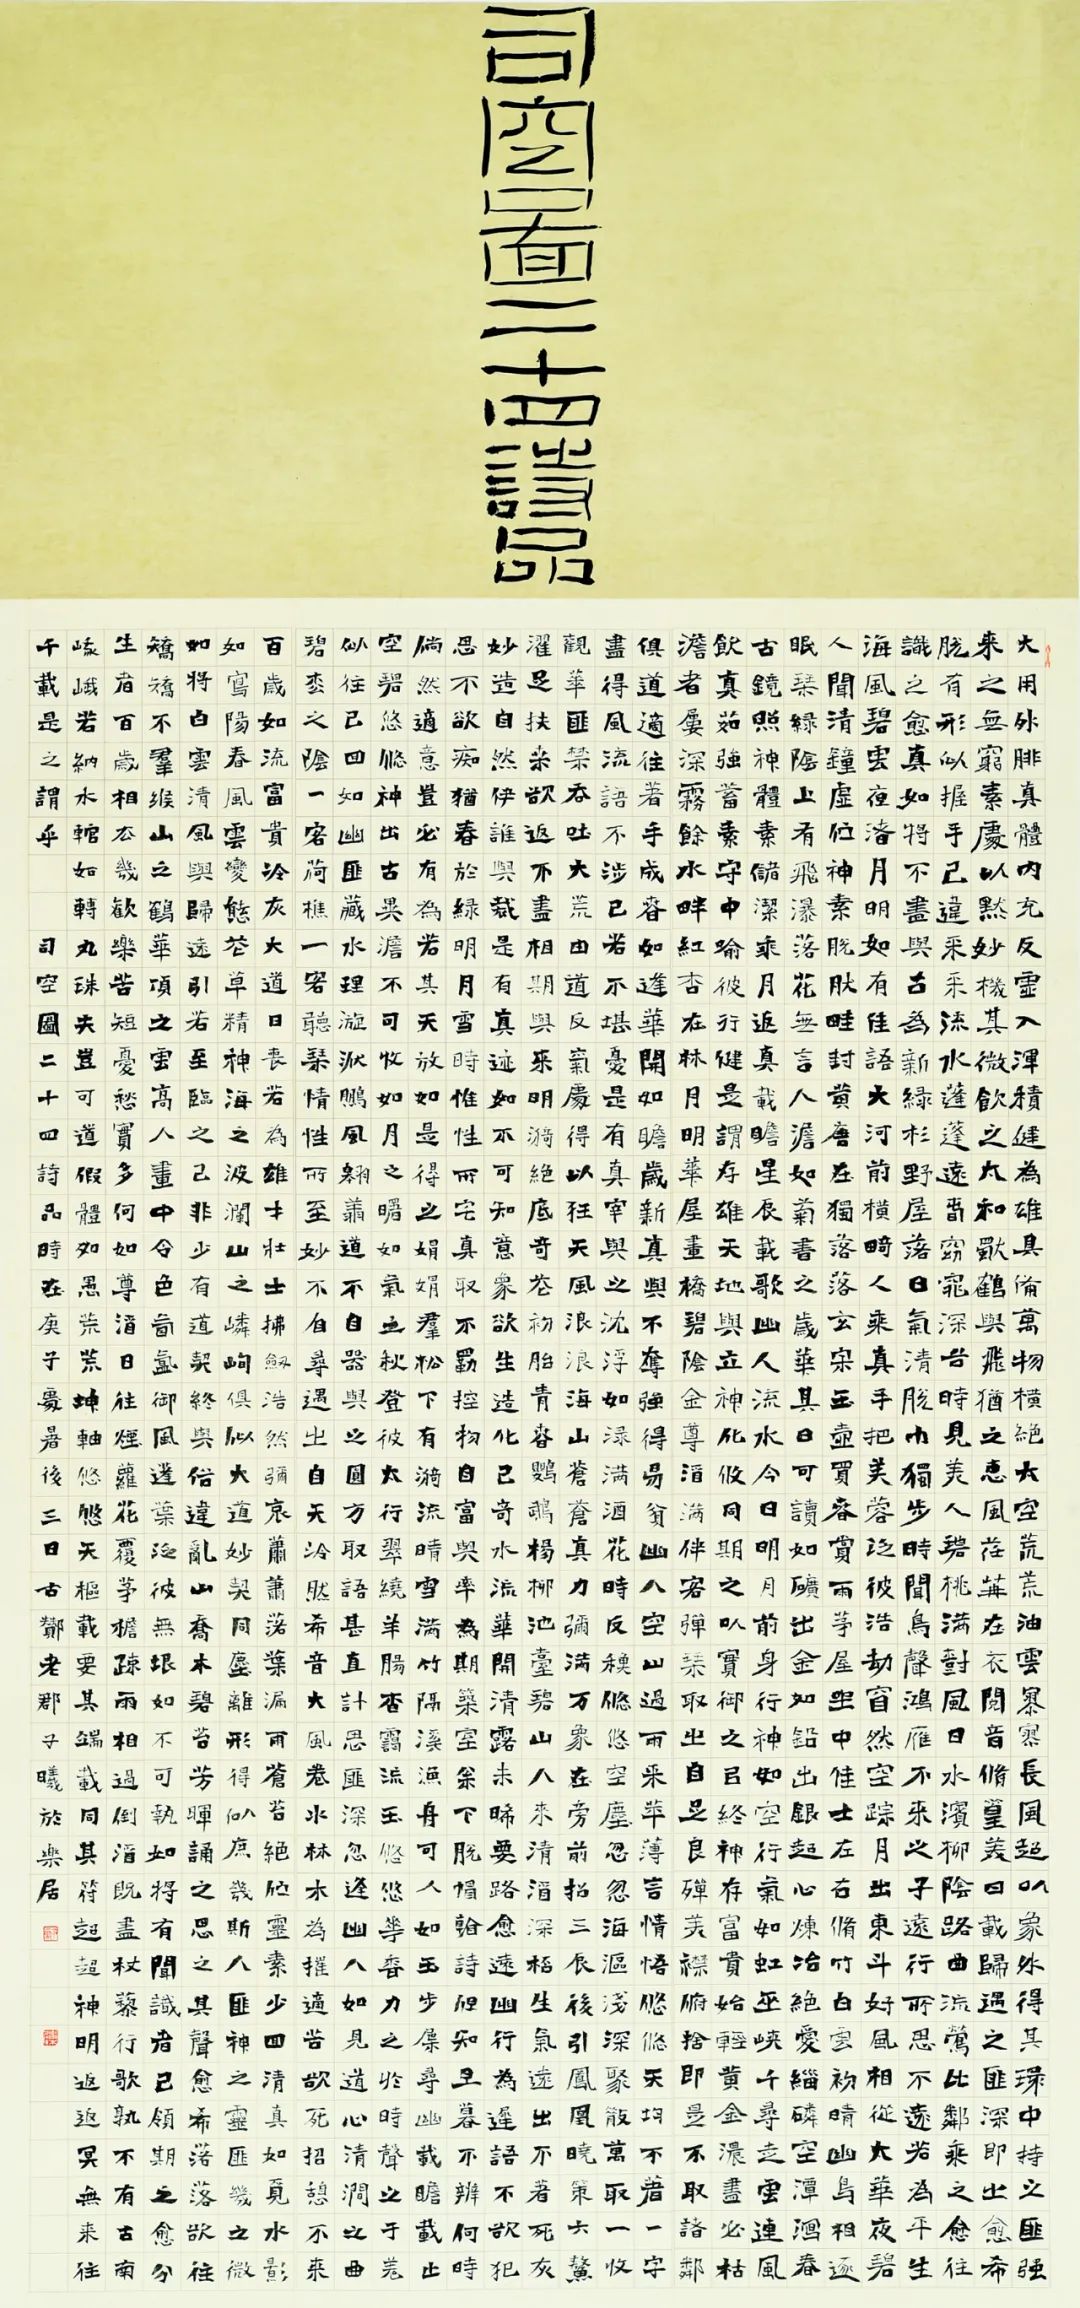 司空圖二十四詩品
大用外腓真體內充反虛入渾積健為雄具備萬物橫絕太空荒荒油雲寥寥長風超以象外得其環中持之匪強
來之無窮素處以默妙機其微飲之太和獨鶴與飛猶之惠風荏苒在衣閱音修篁美曰載歸遇之匪深即之愈希
脫有形似握手已違采采流水蓬蓬遠春窈窕深谷時見美人碧桃滿樹風日水濱柳陰路曲流鶯比鄰乘之愈往
識之愈真如將不盡與古為新綠杉野屋落日氣清脫巾獨步時聞鳥聲鴻雁不來之子遠行所思不遠若為平生
海風碧雲夜渚月明如有佳語大河前橫畸人乘真手把芙蓉泛彼浩劫窅然空踪月出東斗好風相從太華夜碧
人聞清鐘虛佇神素脫然畦封黃唐在獨落落玄宗玉壺買春賞雨茅屋坐中佳士左右修竹白雲初晴幽鳥相逐
眠琴綠陰上有飛瀑落花無言人澹如菊書之歲華其曰可讀如礦出金如鉛出銀超心煉冶絕愛緇磷空潭瀉春
古鏡照神體素儲潔乘月返真載瞻星辰載歌幽人流水今日明月前身行神如空行氣如虹巫峽千尋走雲連風
飲真茹強蓄素守中喻彼行健是謂存雄天地與立神化攸同期之以實御之以終神存富貴始輕黃金濃盡必枯
澹者屢深霧餘水畔紅杏在林月明華屋畫橋碧陰金尊酒滿伴客彈琴取之自足良殫美襟俯拾即是不取諸鄰
俱道適往著手成春如逢華開如瞻歲新真與不奪強得易貧幽人空山過雨采苹薄言情悟悠悠天均不着一字
盡得風流語不涉己若不堪憂是有真宰與之沈浮如淥滿酒花時反秋悠悠空塵忽忽海漚淺深聚散萬取一收
觀華匪禁吞吐大荒由道反氣處得以狂天風浪浪海山蒼蒼真力彌滿万象在旁前招三辰後引鳳凰曉策六鰲
濯足扶桑欲返不盡相期與來明漪絕底奇花初胎青春鸚鵡楊柳池臺碧山人來清酒深杯生氣遠出不著死灰
妙造自然伊誰與裁是有真迹如不可知意象欲生造化已奇水流華開清露未晞要路愈遠幽行為遲語不欲犯
思不欲痴猶春於綠明月雪時惟性所宅真取不羈控物自富與率為期築室下脫帽詩但知旦暮不辨何時
倘然適意豈必有為若其天放如是得之娟娟羣松下有漪流晴雪滿竹隔溪漁舟可人如玉步屧尋幽載瞻載止
空碧悠悠神出古異澹不可收如月之曙如氣之秋登彼太行翠繞羊腸杳靄流玉悠悠花香力之於時聲之于羌
似往已回如幽匪藏水理漩洑鵬風翱翔道不自器與之圓方取語甚直計思匪深忽逢幽人如見道心清澗之曲
碧松之陰一客荷樵一客聽琴情性所至妙不自尋遇之自天泠然希音大風卷水林木為摧適苦欲死招憩不來
百歲如流富貴冷灰大道日喪若為雄才壯士拂劍浩然彌哀蕭蕭落葉漏雨蒼苔絕佇靈素少回清真如覓水影
如寫陽春風雲變態花草精神海之波瀾山之嶙峋俱似大道妙契同塵離形得似庶幾斯人匪神之靈匪幾之微
如將白雲清風與歸遠引若至臨之已非少有道契終與俗違亂山喬木碧苔芳暉誦之思之其聲愈希落落欲往
矯矯不羣緱山之鶴華頂之雲高人畫中令色氤氳御風蓬葉泛彼無垠如不可執如將有聞識者已領期之愈分
生者百歲相去幾歡樂苦短憂愁實多何如尊酒日往煙蘿花覆茅檐疎雨相過倒酒既盡杖藜行歌孰不有古南
峨若納水輨如轉丸珠夫豈可道假體如愚荒荒坤軸悠悠天樞載要其端載同其符超超神明返返冥無來往
千載是之謂乎 司空圖二十四詩品時在庚子處暑後三日古酇老郡子曦於樂居